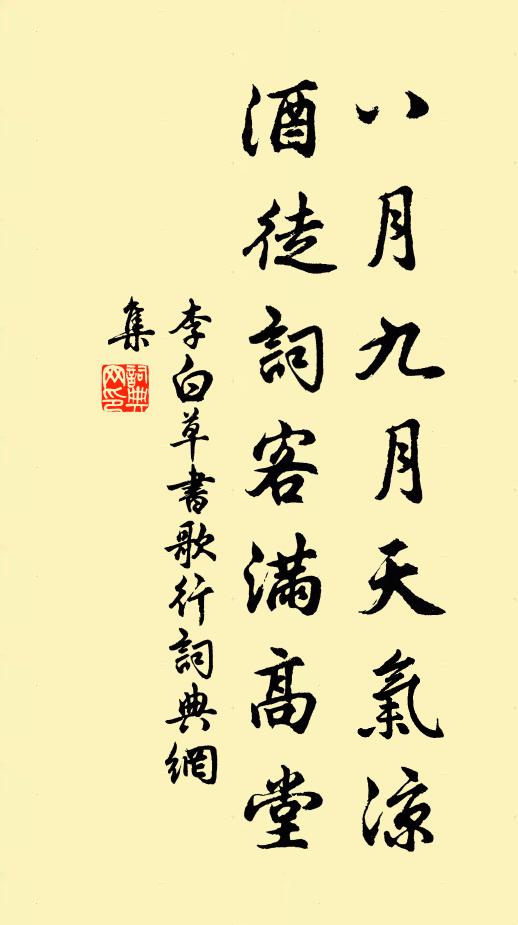 八月九月天氣凉
酒徒詞客滿高堂
李白草書歌行詞典網
集
詞典網印